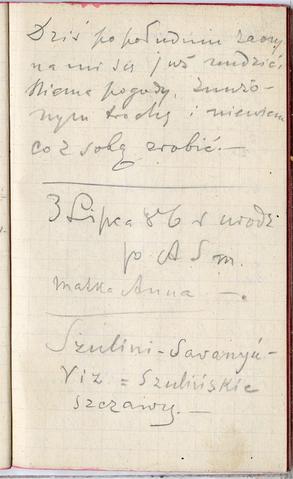 Dziś po południu zaczy
na mi się już nudzić.
Niema pogody. Znużo-
nym trochę i niewiem
co z sobą zrobić. —
3 Lipca 86 r urodz
po A S m.
matka Anna —.
Szulini-Savanyú-
Viz = Szulińskie
szczawy. —